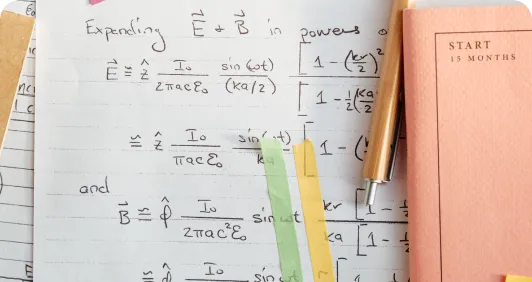 Expending E⃗ + B⃗ in powers
E⃗ ≅ ẑ I₀/2πacε₀ sin(ωt)/(ka/2) [1 - (kr/2)²]/[1 - ½(ka/2
≅ ẑ I₀/πacε₀ sin(ωt)/ka [1 - (
and
B⃗ ≅ φ̂ I₀/2πac²ε₀ sin ωt kr[1 - ½/ka[1 - ½
≅ φ̂ I₀ sin ωt
START
15 MONTHS